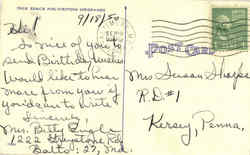 THIS SPACE FOR WRITING MESSAGES
9/18/50
So nice of you to
send Birthday wishes
Would like to hear
more from you if
you care to write
Sincerely,
Mrs. Billy
1222
Balto: 27, Md.
POST CARD
Mrs Susan Sharpe
R.D. #1
Kersey, Penna.